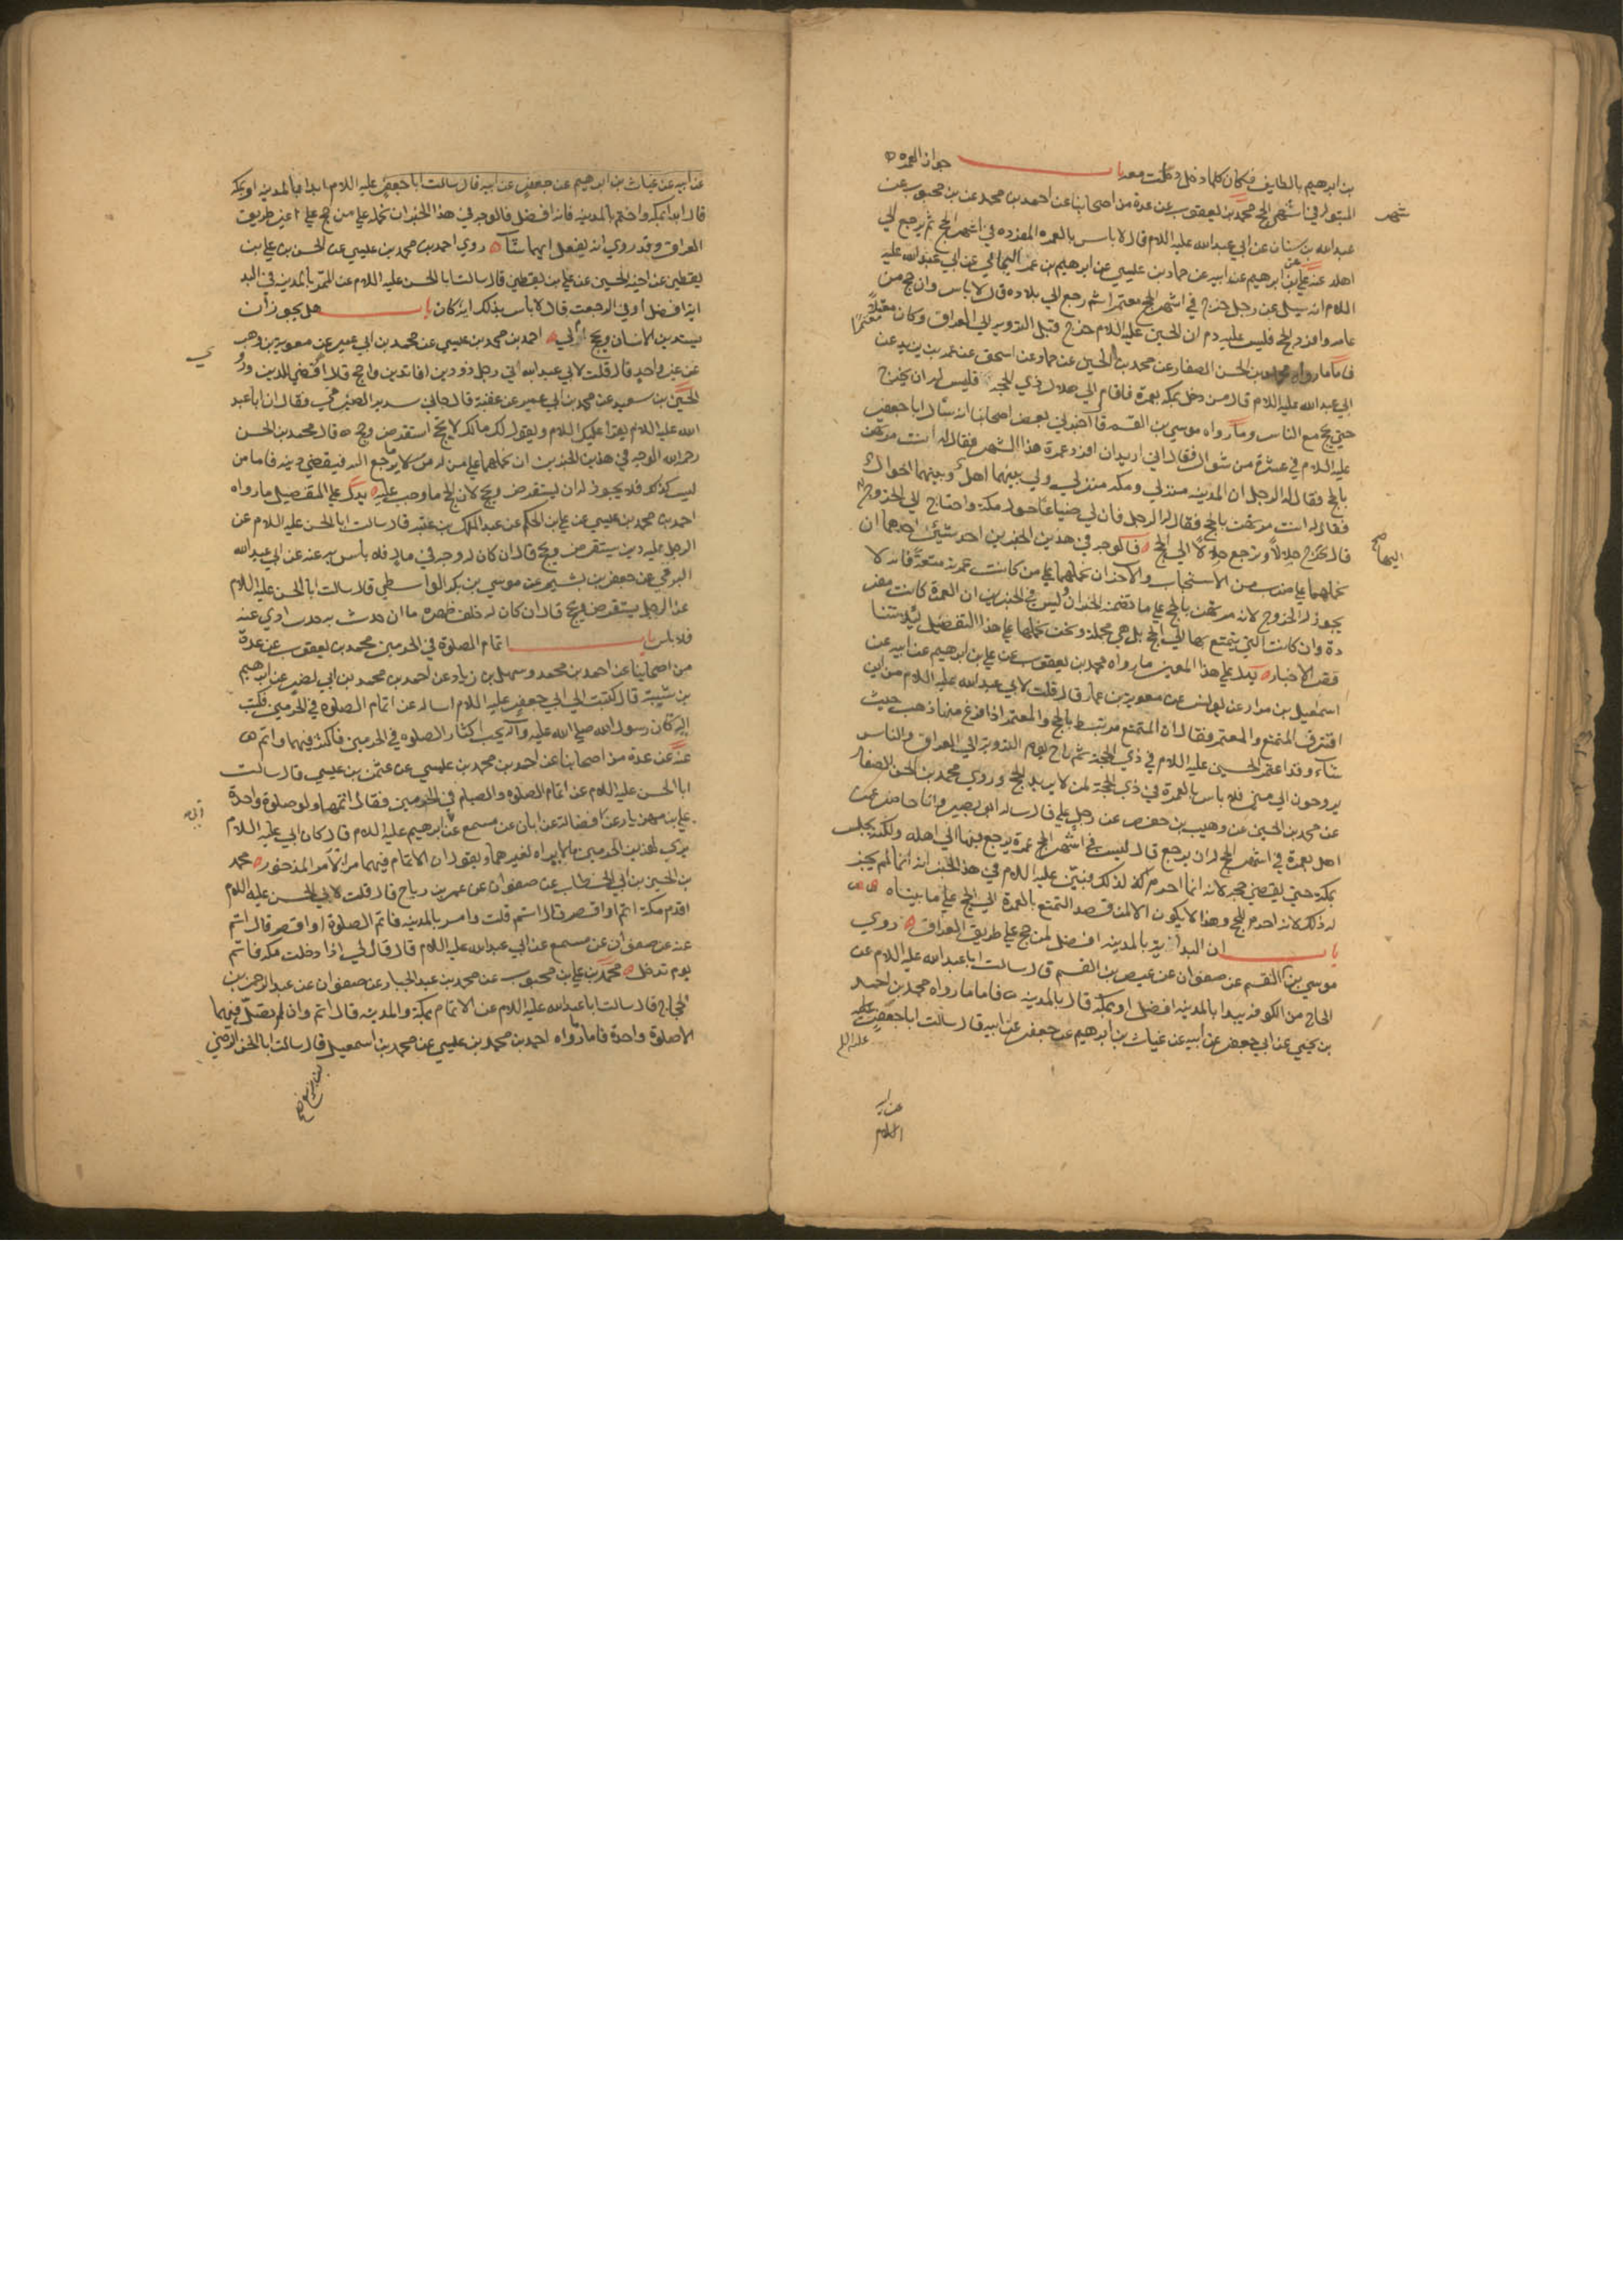 بن ابرهيم بالطايف فكان كلما دخل دخلت معه باب جواز العمره
المبتوله في اشهر الحج محمد بن يعقوب عن عدة من اصحابنا عن احمد بن محمد عن بن محبوب عن
شهر
عبد الله بن سنان عن ابي عبد الله عليه السلام قال لا باس بالعمره المفرده في اشهر الحج ثم يرجع الي
اهله عنه عن علي بن ابرهيم عن ابيه عن حماد بن عيسي عن ابرهيم بن عمر اليماني عن ابي عبد الله عليه
السلام انه سيل عن رجل خرج في اشهر الحج معتمرا ثم رجع الي بلاده قال لا باس وان حج من
عامه وافرد الحج فليس عليه دم ان الحسين عليه السلام خرج قبل الترويه الي العراق وكان معتمرا
فاما ما رواه محمد بن الحسن الصفار عن محمد بن الحسين عن حماد عن اسحق عن عمر بن يزيد عن
ابي عبد الله عليه السلام قال من دخل مكه بعمرة فاقام الي هلال ذي الحجه فليس له ان يخرج
حتي يحج مع الناس وما رواه موسي بن القسم قال اخبرني بعض اصحابنا انه سال ابا جعفر
عليه السلام في عشرة من شوال فقال اني اريد ان افرد عمرة هذا الشهر فقال له انت مرتهن
بالحج فقال له الرجل ان المدينه منزلي ومكه منزلي ولي بينهما اهل وبينهما اموال
فقال له انت مرتهن بالحج فقال له الرجل فان لي ضياعا حول مكة واحتاج الي الخروج اليها
قال تخرج حلالا وترجع حلالا الي الحج فالوجه في هذين الخبرين احد شيئين احدهما ان
نحملهما علي ضرب من الاستحباب والاخر ان نحملهما علي من كانت عمرته متعة فانه لا
يجوز له الخروج لانه مرتهن بالحج علي ما تضمنه الخبران وليس في الخبرين ان العمرة كانت مفر
دة وان كانت التي يتمتع بها الي الحج بل هي مجملة ونحن نحملها علي هذا التفصيل ليلا تتنا
قض الاخبار يدل علي هذا المعني ما رواه محمد بن يعقوب عن علي بن ابرهيم عن ابيه عن
اسمعيل بن مرار عن يونس عن معوية بن عمار قال قلت لابي عبد الله عليه السلام من اين
افترق المتمتع والمعتمر فقال ان المتمتع مرتبط بالحج والمعتمر اذا فرغ منها ذهب حيث
شاء وقد اعتمر الحسين عليه السلام في ذي الحجة ثم راح يوم التروية الي العراق والناس
يروحون الي مني فلا باس بالعمرة في ذي الحجة لمن لا يريد الحج وروي محمد بن الحسن الصفار
عن محمد بن الحسين عن وهيب بن حفص عن علي قال ساله ابو بصير وانا حاضر عمن
اهل بعمرة في اشهر الحج له ان يرجع قال ليس في اشهر الحج عمرة يرجع فيها الي اهله ولكنه يحتبس
بمكة حتي يقضي حجه لانه انما احرم لذلك فبين عليه السلام في هذا الخبر انه انما لم يجز
له ذلك لانه احرم للحج وهذا لا يكون الا لمن قصد التمتع بالعمرة الي الحج علي ما بيناه
باب ان البداية بالمدينه افضل لمن حج علي طريق العراق روي
موسي بن القسم عن صفوان عن عيص بن القسم قال سالت ابا عبد الله عليه السلام عن
الحاج من الكوفه يبدا بالمدينه افضل او بمكه قال بالمدينه فاما ما رواه محمد بن احمد
بن يحيي عن ابي جعفر عن ابيه عن غياث بن ابرهيم عن جعفر عن ابيه قال سالت ابا جعفر عليه
السلام
عن ابيه عن غياث بن ابرهيم عن جعفر عن ابيه قال سالت ابا جعفر عليه السلام ابدا بالمدينه او بمكه
قال ابدا بمكه واختم بالمدينه فانه افضل فالوجه في هذا الخبر ان نحمله علي من حج علي غير طريق
العراق وقد روي انه يفعل ايهما شاء روي احمد بن محمد بن عيسي عن الحسن بن علي بن
يقطين عن اخيه الحسين عن علي بن يقطين قال سالت ابا الحسن عليه السلام عن الممر بالمدينه في البد
اية افضل او في الرجعت قال لا باس بذلك اية كان باب هل يجوز ان
يستدين الانسان ويحج ام لا احمد بن محمد بن عيسي عن محمد بن ابي عمير عن معوية بن وهب
عن غير واحد قال قلت لابي عبد الله اني رجل ذو دين افاتدين واحج قال نعم اقضي للدين وروي
الحسين بن سعيد عن محمد بن ابي عمير عن عقبة قال جاني سدير الصيرفي فقال ان ابا عبد
الله عليه السلام يقرا عليك السلام ويقول لك مالك لا تحج استقرض وحج قال محمد بن الحسن
رحمه الله الوجه في هذين الخبرين ان نحملهما علي من له من يرجع اليه فيقضي دينه فاما من
ليس كذلك فلا يجوز له ان يستقرض ويحج لان الحج ما وجب عليه يدل علي التفصيل ما رواه
احمد بن محمد بن عيسي عن علي بن الحكم عن عبد الملك بن عتبه قال سالت ابا الحسن عليه السلام عن
الرجل عليه دين يستقرض ويحج قال ان كان له وجه في مال فلا باس به عنه عن ابي عبد الله
البرقي عن جعفر بن بشير عن موسي بن بكر الواسطي قال سالت ابا الحسن عليه السلام
عن الرجل يستقرض ويحج قال ان كان له خلف ظهره ما ان حدث به حدث ادي عنه
فلا باس باب اتمام الصلوة في الحرمين محمد بن يعقوب عن عدة
من اصحابنا عن احمد بن محمد وسهل بن زياد عن احمد بن محمد بن ابي نصر عن ابرهيم
بن شيبة قال كتبت الي ابي جعفر عليه السلام اساله عن اتمام الصلوه في الحرمين فكتب
الي كان رسول الله صلي الله عليه وآله يحب اكثار الصلوه في الحرمين فاكثر فيهما واتم
عنه عن عدة من اصحابنا عن احمد بن محمد بن عيسي عن عثمن بن عيسي قال سالت
ابا الحسن عليه السلام عن اتمام الصلوه والصيام في الحرمين فقال اتمها ولو صلوة واحدة
علي بن مهزيار عن فضالة عن ابان عن مسمع عن ابي ابرهيم عليه السلام قال كان ابي عليه السلام
يري لهذين الحرمين ما لا يراه لغيرهما ويقول ان الاتمام فيهما من الامر المذخور محمد
بن الحسين بن ابي الخطاب عن صفوان عن عمر بن رياح قال قلت لابي الحسن عليه السلام
اقدم مكة اتم او اقصر قال اتم قلت وامر بالمدينه فاتم الصلوة او اقصر قال اتم
عنه عن صفوان عن مسمع عن ابي عبد الله عليه السلام قال قال لي اذا دخلت مكه فاتم
يوم تدخل محمد بن علي بن محبوب عن محمد بن عبد الجبار عن صفوان عن عبد الرحمن بن
الحجاج قال سالت ابا عبد الله عليه السلام عن الاتمام بمكة والمدينه قال اتم وان لم تصل فيهما
الا صلوة واحدة فاما ما رواه احمد بن محمد بن عيسي عن محمد بن اسمعيل قال سالت ابا الحسن الرضي